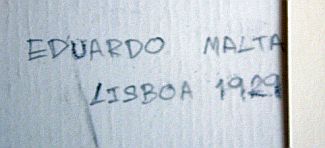 EDUARDO MALTA
LISBOA 1929